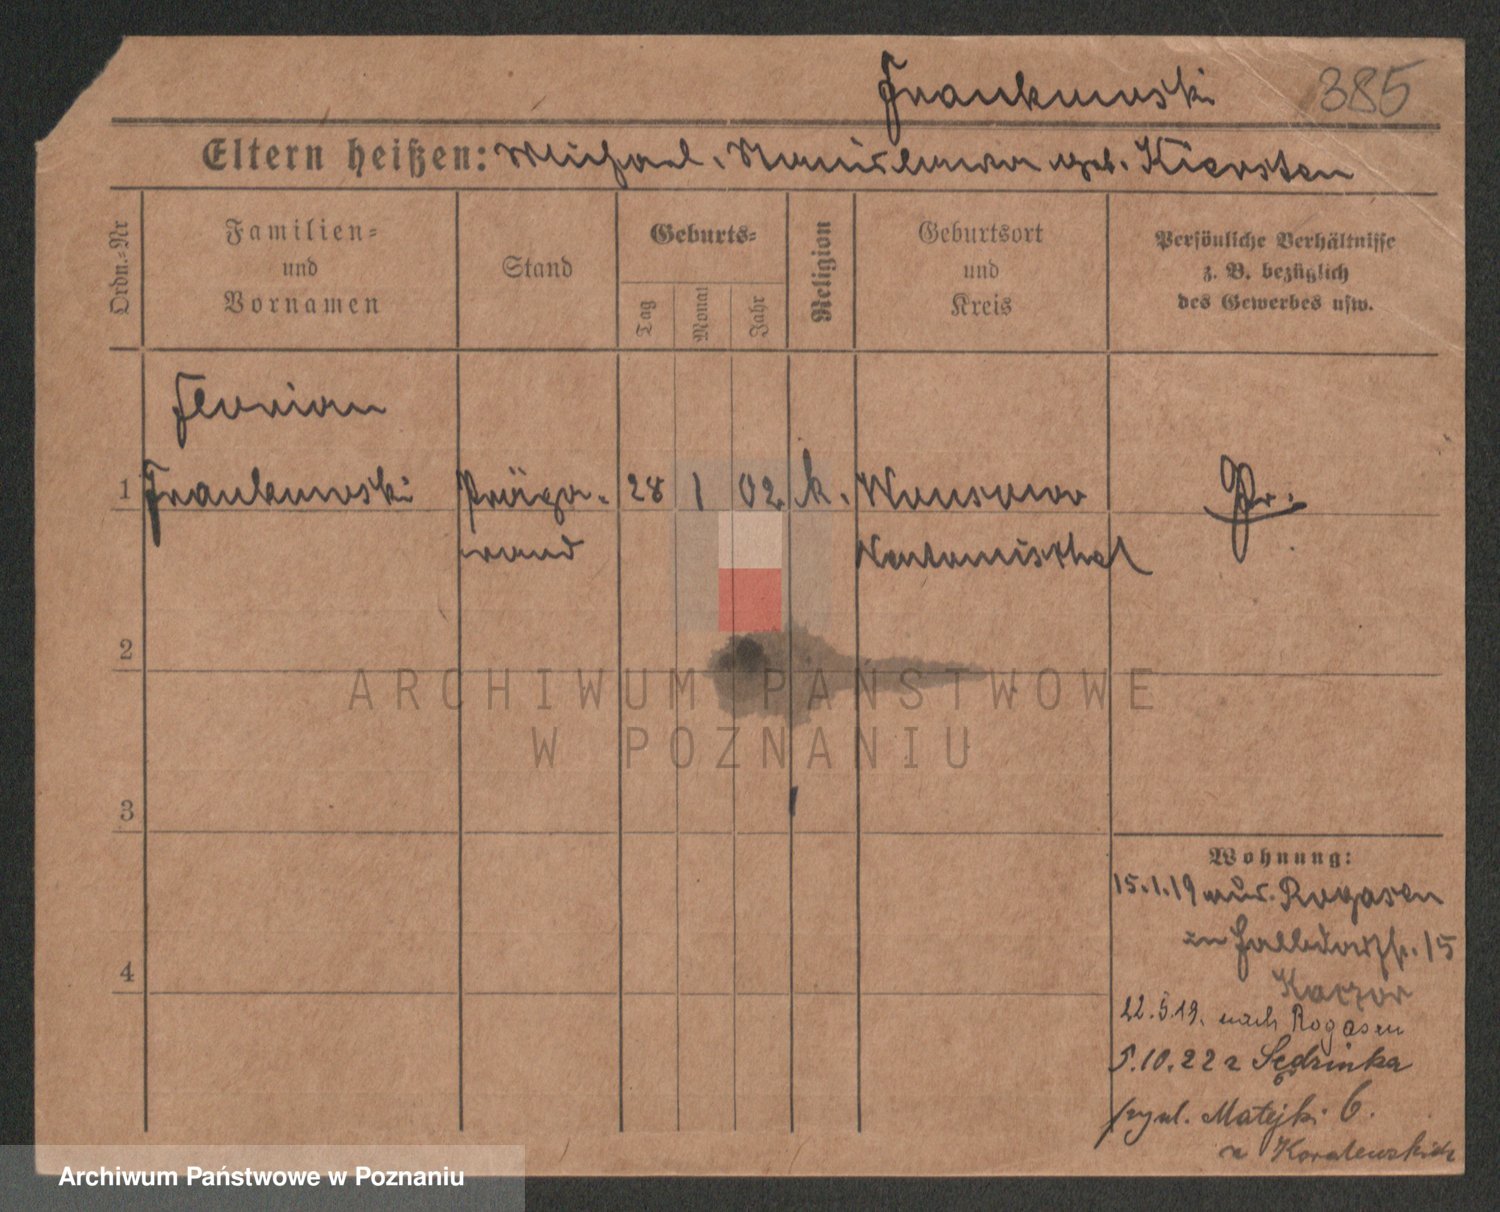 Frankowski 385
Eltern heißen: Michael, Stanislawa geb. Kiersten
Ordn.-Nr
Familien-
und
Vornamen
Stand
Geburts-
Tag
Monat
Jahr
Religion
Geburtsort
und
Kreis
Persönliche Verhältnisse
z. B. bezüglich
des Gewerbes usw.
Florian
1 Frankowski 28 1 02 k. Pr.
2
3
4
Wohnung:
15.1.19 aus Rogasen
in Halbdorfstr. 15
Kaczor
22.5.19. nach Rogasen
5.10.22 z Sędzinka
Matejki 6.
u Koralewskich
ARCHIWUM PAŃSTWOWE
W POZNANIU
Archiwum Państwowe w Poznaniu